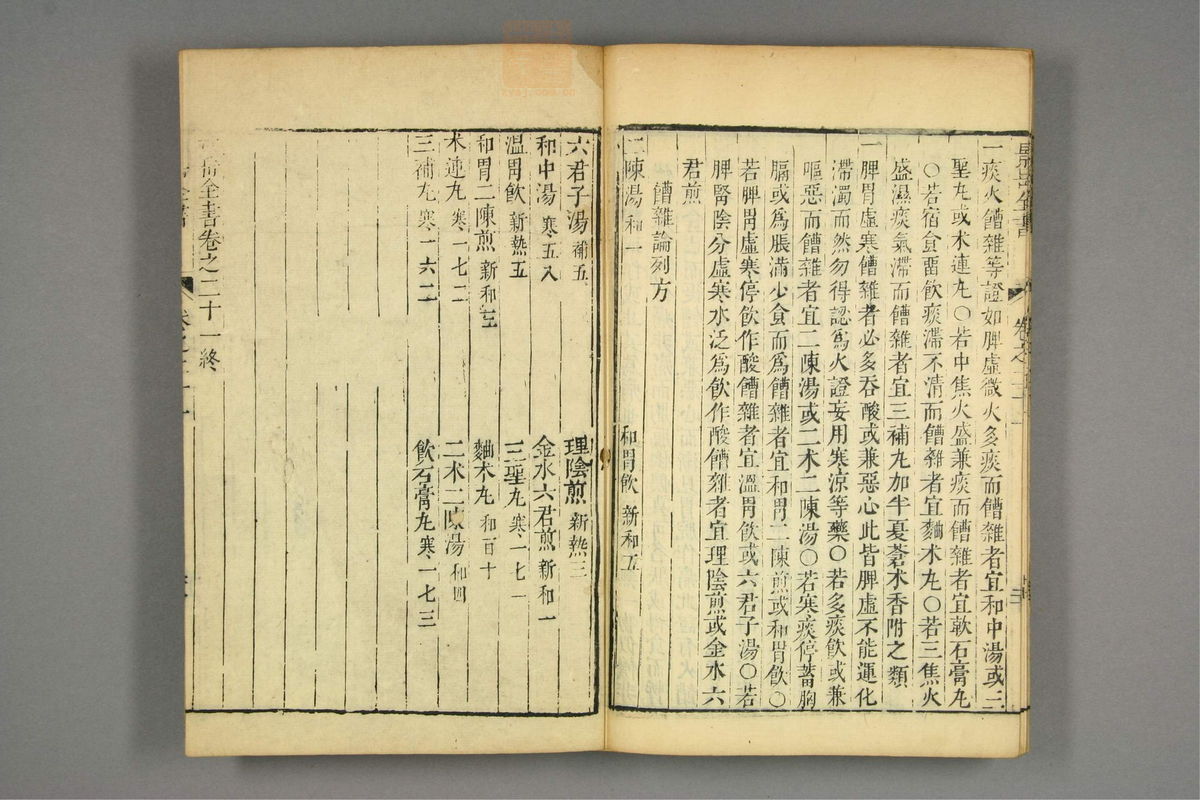 一痰火饘雜等證如脾虛微火多痰而饘雜者宜和中湯或三
聖丸或术連丸〇若中焦火盛兼痰而饘雜者宜軟石膏丸
〇若宿食畱飲痰滯不清而饘雜者宜麯术丸〇若三焦火
盛濕痰氣滯而饘雜者宜三補丸加半夏蒼术香附之類
一脾胃虛寒饘雜者必多吞酸或兼惡心此皆脾虛不能運化
滯濁而然勿得認爲火證妄用寒涼等藥〇若多痰飲或兼
嘔惡而饘雜者宜二陳湯或二术二陳湯〇若寒痰停蓄胸
膈或爲脹滿少食而爲饘雜者宜和胃二陳煎或和胃飲〇
若脾胃虛寒停飲作酸饘雜者宜溫胃飲或六君子湯〇若
脾腎陰分虛寒水泛爲飲作酸饘雜者宜理陰煎或金水六
君煎
饘雜論列方
二陳湯 和一 和胃飲 新和五
六君子湯 補五 理陰煎 新熱三
和中湯 寒五八 金水六君煎 新和一
溫胃飲 新熱五 三聖丸 寒一七一
和胃二陳煎 新和三 麯术丸 和百十
术連丸 寒一七二 二术二陳湯 和四
三補丸 寒一六二 飲石膏丸 寒一七三
岳全書卷之二十一終